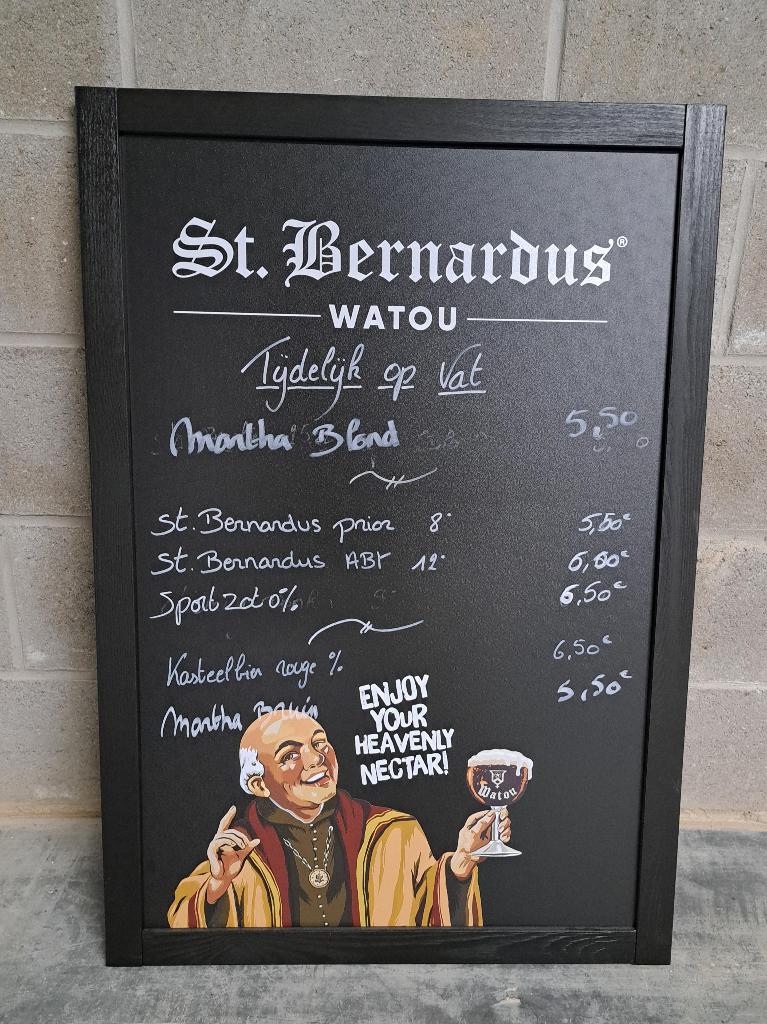 St. Bernardus®
WATOU
Tijdelijk op Vat
Martha Blond 5,50
St. Bernardus prior 8° 5,50€
St. Bernardus ABT 12° 6,00€
Sport Zot 0% 6,50€
Kasteelbier rouge % 6,50€
Martha Bruin 5,50€
ENJOY
YOUR
HEAVENLY
NECTAR!
Watou